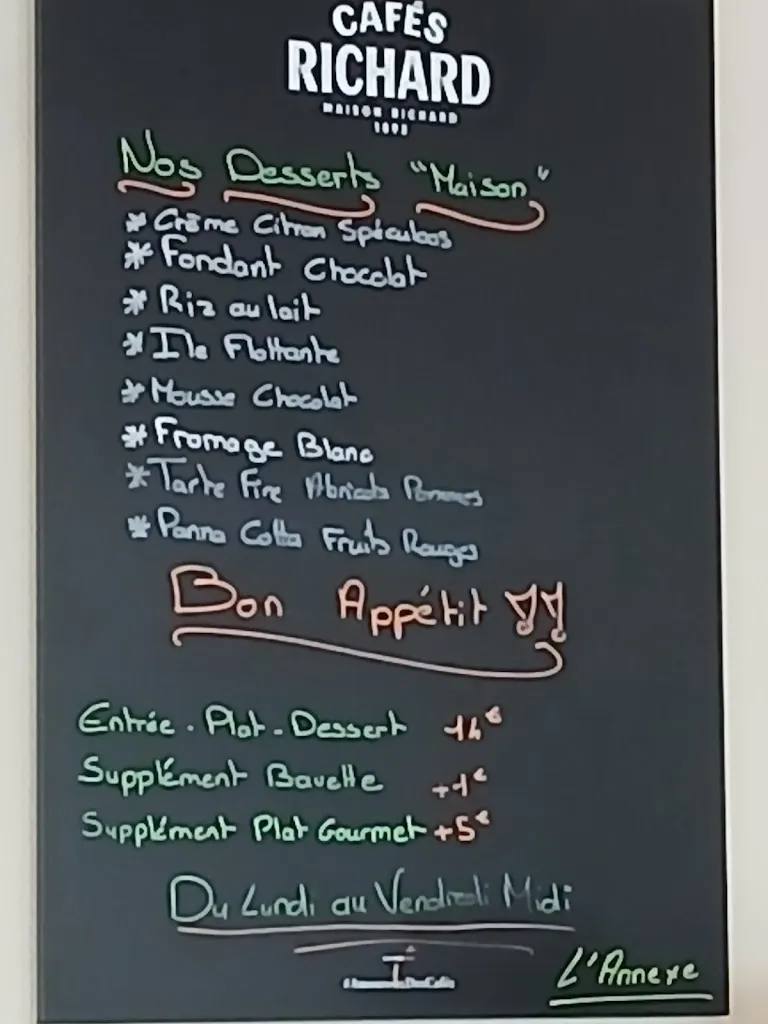 CAFÉS
RICHARD
MAISON RICHARD
1892
Nos Desserts "Maison"
* Crème Citron Spéculoos
* Fondant Chocolat
* Riz au lait
* Ile Flottante
* Mousse Chocolat
* Fromage Blanc
* Tarte Fine Abricots Pommes
* Panna Cotta Fruits Rouges
Bon Appétit !!
Entrée - Plat - Dessert 14€
Supplément Bavette +1€
Supplément Plat Gourmet +5€
Du Lundi au Vendredi Midi
L'Annexe